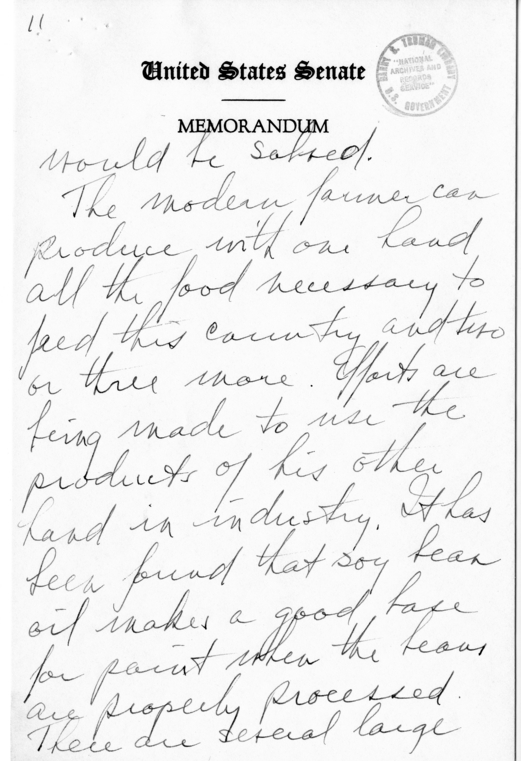 11
United States Senate
MEMORANDUM
HARRY S. TRUMAN LIBRARY
"NATIONAL
ARCHIVES AND
RECORDS
SERVICE"
U.S. GOVERNMENT
would be solved.
The modern farmer can
produce with one hand
all the food necessary to
feed this country and two
or three more. Efforts are
being made to use the
products of his other
hand in industry. It has
been found that soy bean
oil makes a good base
for paint when the beans
are properly processed.
There are several large